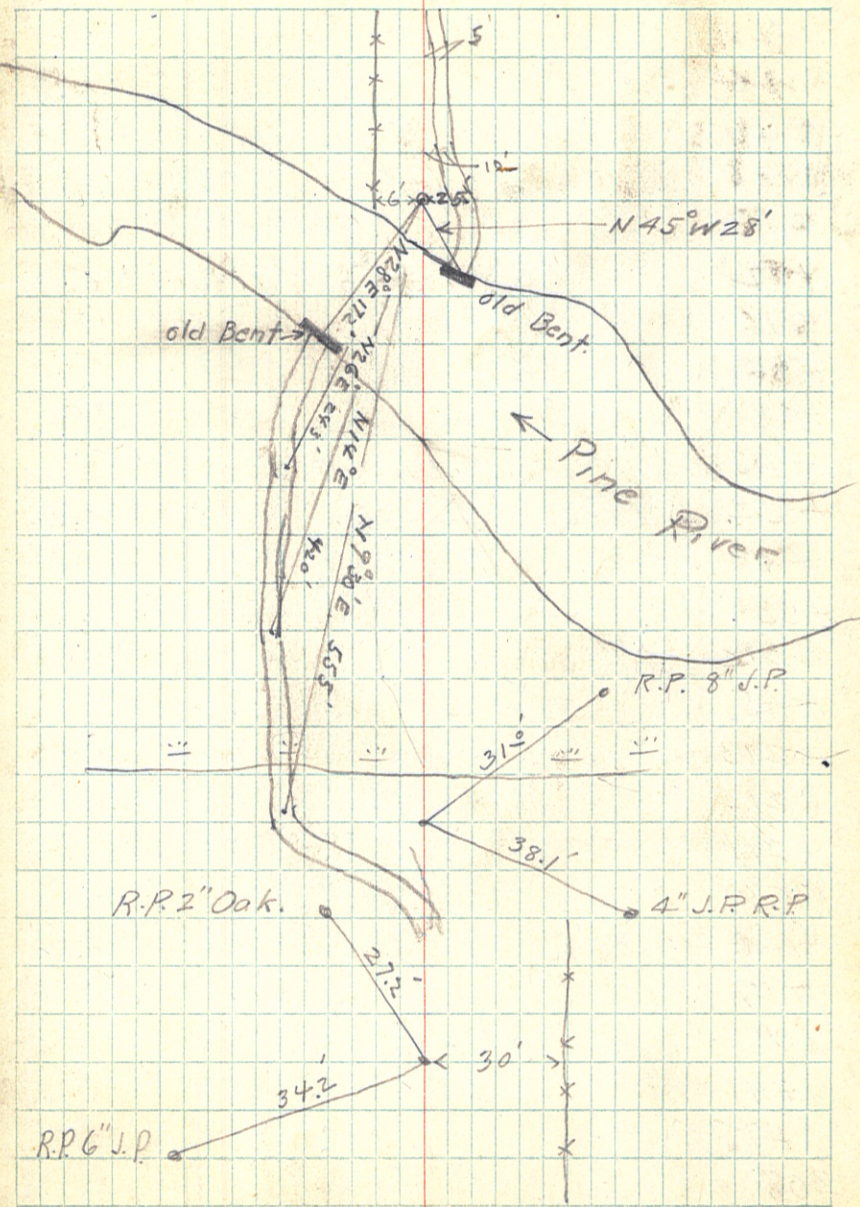 5'
12'
6' 25'
N 45° W 28'
old Bent.
old Bent
N28° E 172'
N26° E 243'
N14° E
420'
N9° 30' E 555'
Pine River
R.P. 8" J.P.
31.0'
38.1'
4" J.P. R.P.
R.P. 2" Oak.
27.2'
30'
34.2'
R.P. 6" J.P.